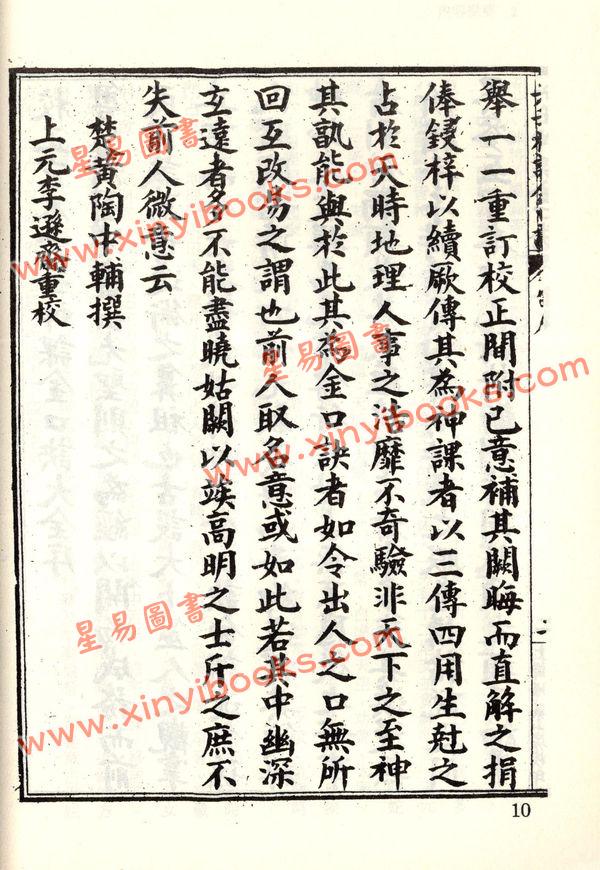 舉一一重訂校正間附已意補其闕晦而直解之捐
俸鋟梓以續厥傳其為神課者以三傳四用生尅之
占於天時地理人事之浩靡不奇驗非天下之至神
其孰能與於此其為金口訣者如令出人之口無所
回互改易之謂也前人取名意或如此若其中幽深
玄遠者多不能盡曉姑闕以竢高明之士斤之庶不
失前人微意云
楚黃陶中輔撰
上元李遜齋重校
10
星易圖書
www.xinyibooks.com
星易圖書
www.xinyibooks.com
星易圖書
www.xinyibooks.com